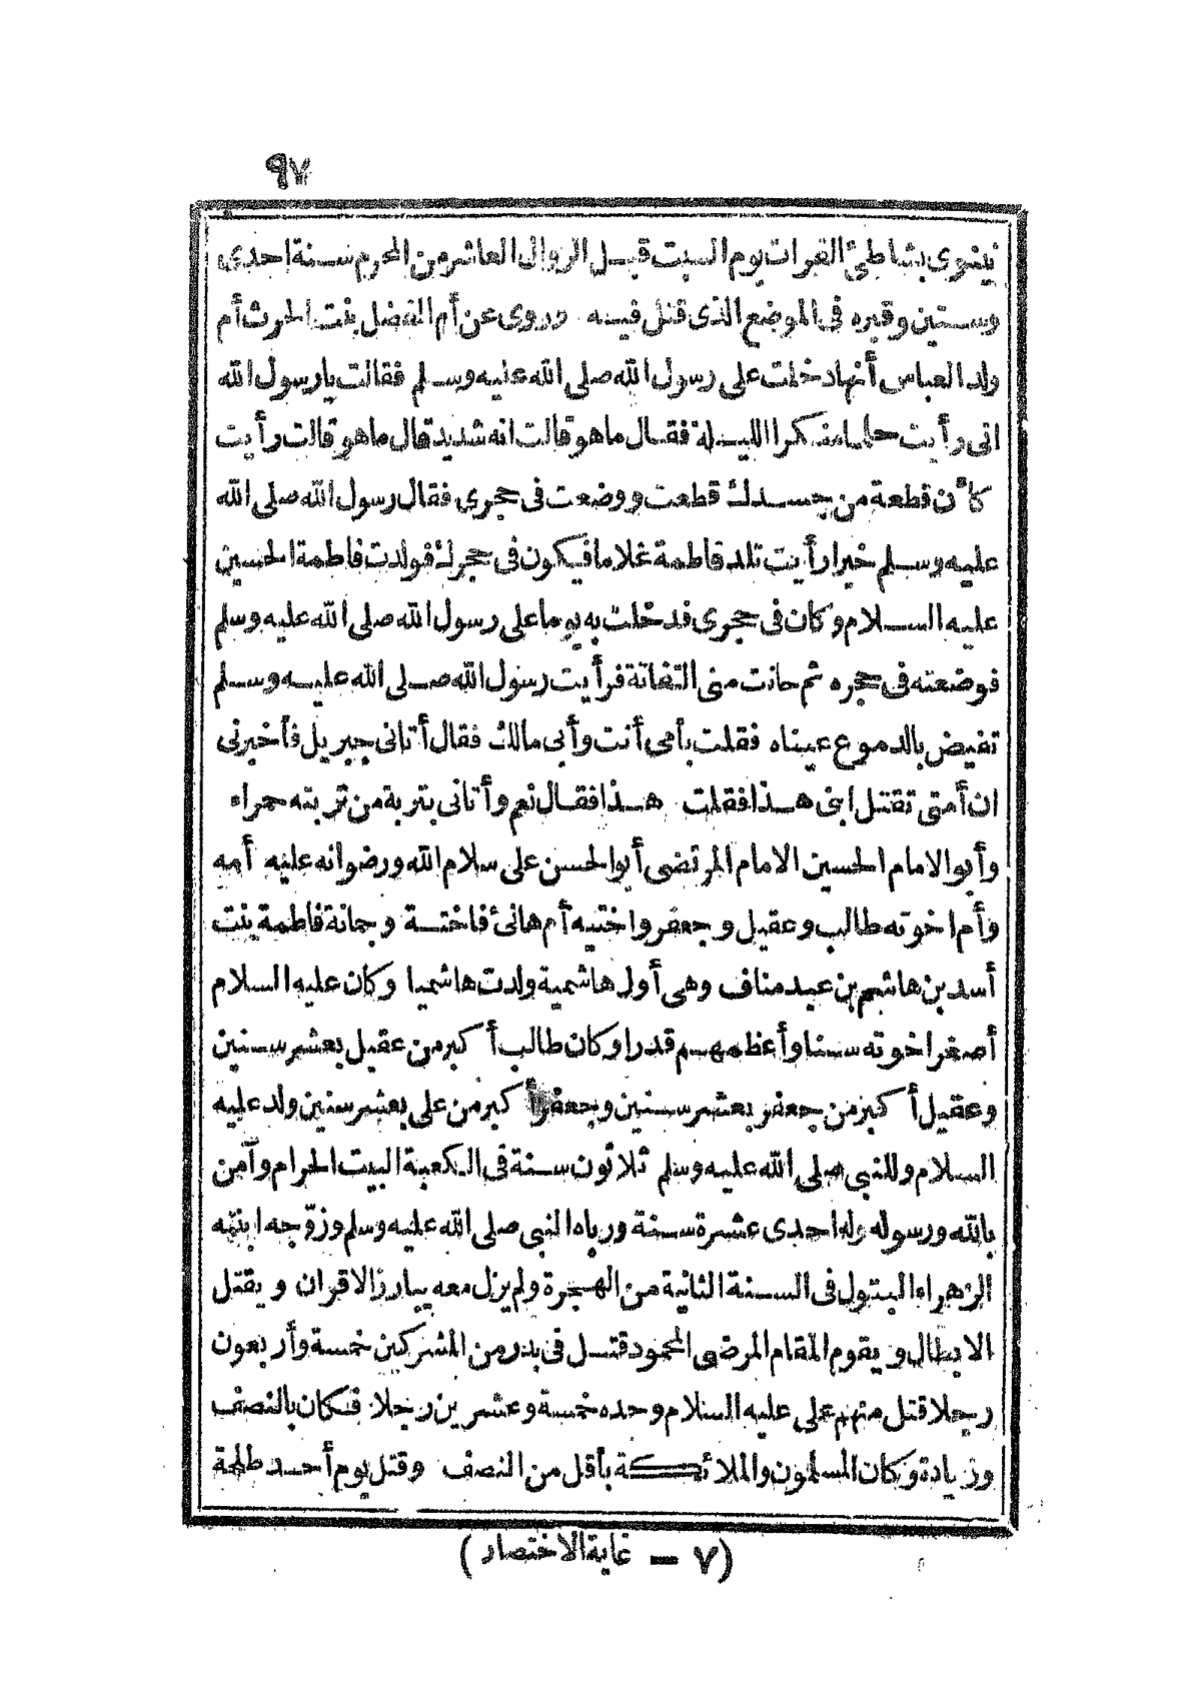 ٩٧
نينوى بشاطئ الفرات يوم السبت قبل الزوال العاشر من المحرم سنة احدى
وستين وقبره فى الموضع الذى قتل فيه وروى عن أم الفضل بنت الحرث أم
ولد العباس أنها دخلت على رسول الله صلى الله عليه وسلم فقالت يا رسول الله
انى رأيت حلما منكرا الليلة فقال ما هو قالت انه شديد قال ما هو قالت رأيت
كأن قطعة من جسدك قطعت ووضعت فى حجرى فقال رسول الله صلى الله
عليه وسلم خيرا رأيت تلد فاطمة غلاما فيكون فى حجرك فولدت فاطمة الحسين
عليه السلام وكان فى حجرى فدخلت به يوما على رسول الله صلى الله عليه وسلم
فوضعته فى حجره ثم حانت منى التفاتة فرأيت رسول الله صلى الله عليه وسلم
تفيض بالدموع عيناه فقلت بأمى أنت وأبى مالك فقال أتانى جبريل فأخبرنى
ان أمتى تقتل ابنى هذا فقلت هذا فقال نعم وأتانى بتربة من تربته حمراء
وأبو الامام الحسين الامام المرتضى أبو الحسن على سلام الله ورضوانه عليه أمه
وأم اخوته طالب وعقيل وجعفر واختيه أم هانئ فاختة وجمانة فاطمة بنت
أسد بن هاشم بن عبد مناف وهى أول هاشمية ولدت هاشميا وكان عليه السلام
أصغر اخوته سنا وأعظمهم قدرا وكان طالب أكبر من عقيل بعشر سنين
وعقيل أكبر من جعفر بعشر سنين وجعفر أكبر من على بعشر سنين ولد عليه
السلام وللنبى صلى الله عليه وسلم ثلاثون سنة فى الكعبة البيت الحرام وآمن
بالله ورسوله وله احدى عشرة سنة ورباه النبى صلى الله عليه وسلم وزوّجه ابنته
الزهراء البتول فى السنة الثانية من الهجرة ولم يزل معه يبارز الاقران ويقتل
الابطال ويقوم المقام المرضى المحمود قتل فى بدر من المشركين خمسة وأربعون
رجلا قتل منهم على عليه السلام وحده خمسة وعشرين رجلا فكان بالنصف
وزيادة وكان المسلمون والملائكة بأقل من النصف وقتل يوم أحد طلحة
(٧ – غاية الاختصار)